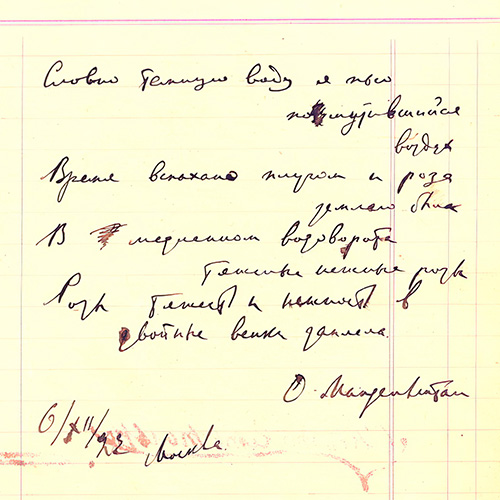 Словно темную воду я пью
помутившийся
воздух
Время вспахано плугом и роза
землею была
В медленном водовороте
тяжелые нежные розы
Розы тяжесть и нежность в
двойные венки заплела.
О. Мандельштам
6/XII/23 Москва.